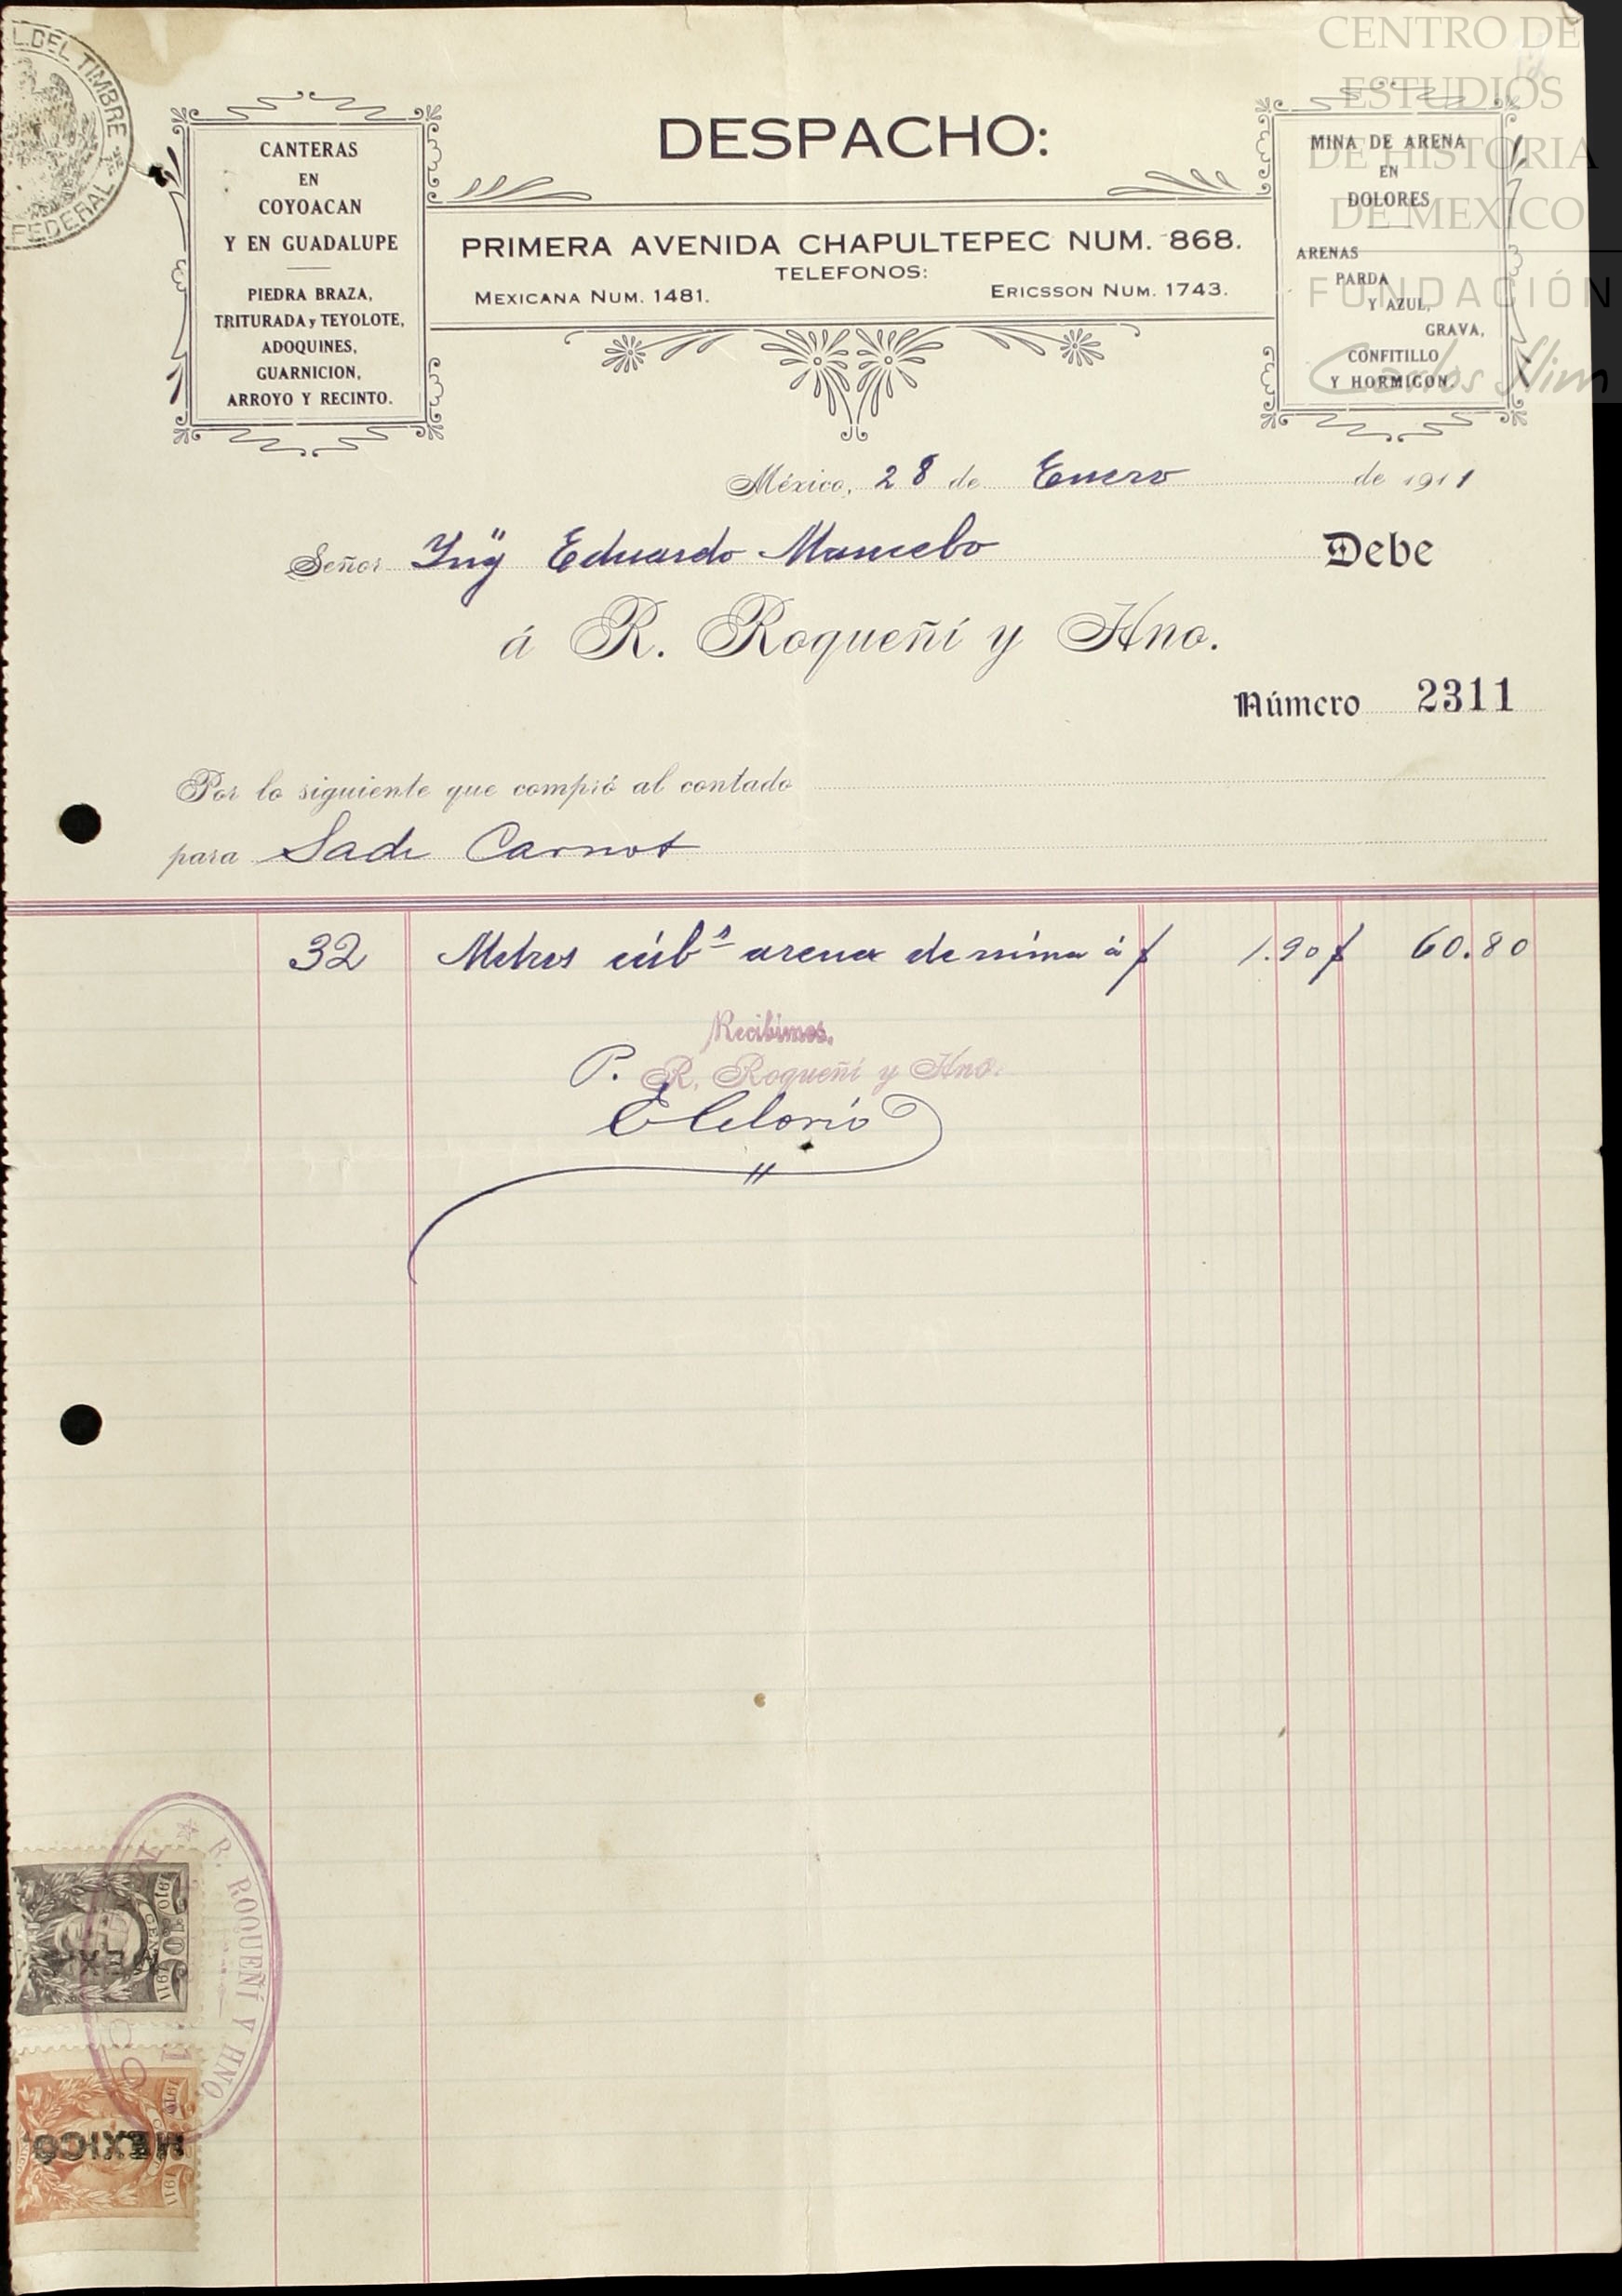 L. DEL TIMBRE
FEDERAL
CENTRO DE
ESTUDIOS
DE HISTORIA
DE MEXICO
FUNDACIÓN
Carlos Slim
CANTERAS
EN
COYOACAN
Y EN GUADALUPE
PIEDRA BRAZA,
TRITURADA y TEYOLOTE,
ADOQUINES,
GUARNICION,
ARROYO Y RECINTO.
DESPACHO:
PRIMERA AVENIDA CHAPULTEPEC NUM. 868.
TELEFONOS:
MEXICANA NUM. 1481.
ERICSSON NUM. 1743.
MINA DE ARENA
EN
DOLORES
ARENAS
PARDA
Y AZUL,
GRAVA,
CONFITILLO
Y HORMIGON.
México, 28 de Enero de 1911
Señor Ing Eduardo Mancebo Debe
á R. Roqueñí y Hno.
Número 2311
Por lo siguiente que compró al contado
para Sadi Carnot
32 Metros cúbs arena de mina á $ 1.90 $ 60.80
Recibimos.
P. R. Roqueñí y Hno.
E Celorio
R. ROQUEÑÍ Y HNO.
1910
1911
MEXICO
1910
1911